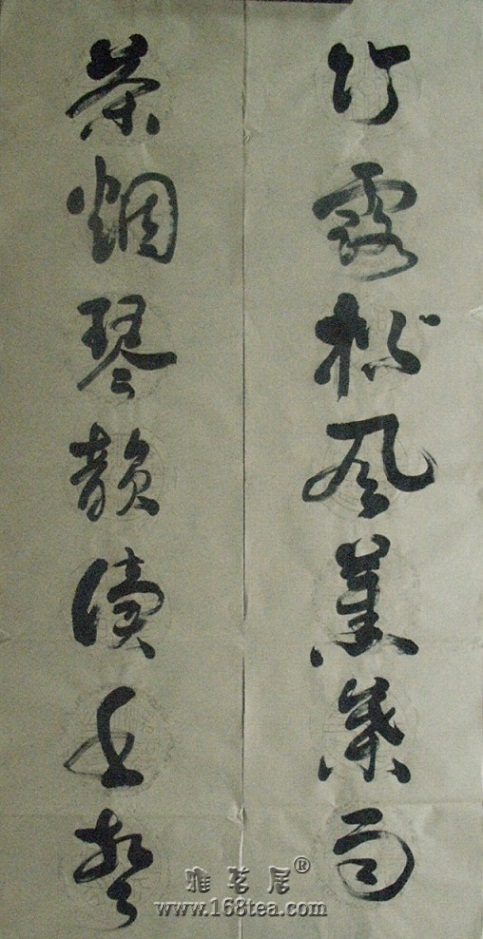 竹露松风蕉叶雨
茶烟琴韵读书声
雅茗居®
www.168tea.com